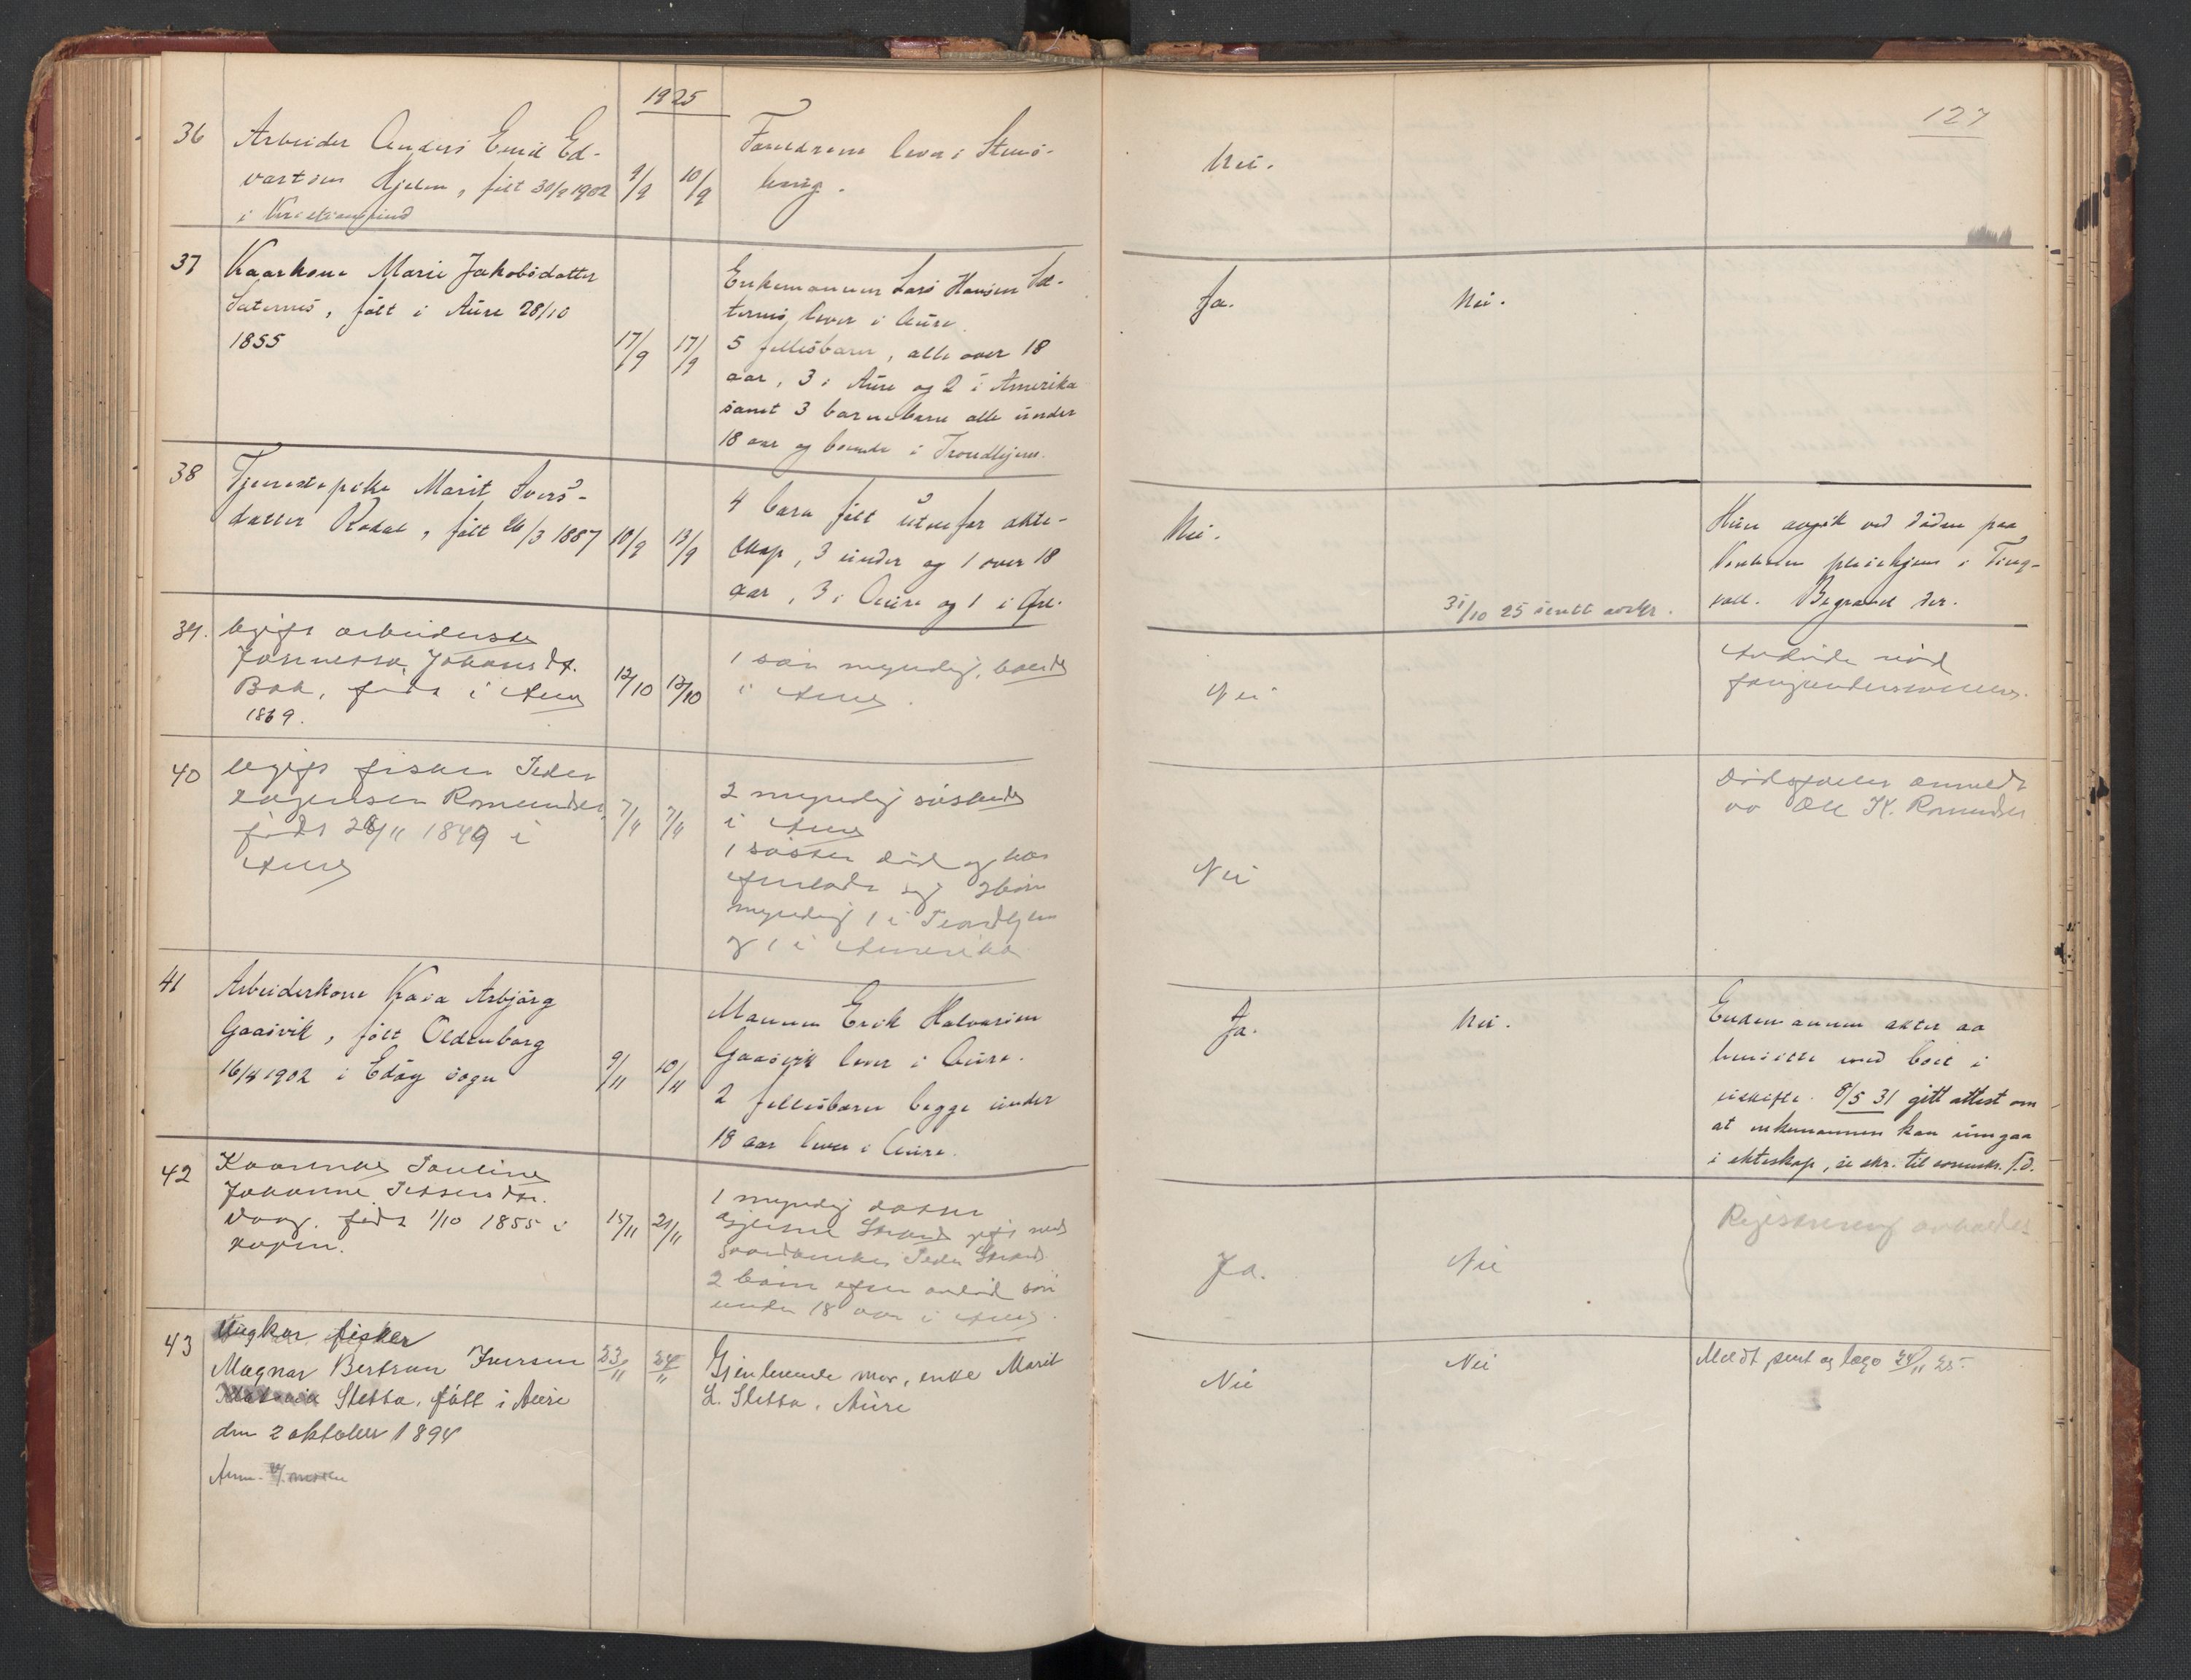 1925
127
36
Arbeider Anders Emil Ed-
vartsen Hjelm, født 30/9 1902
i Kristiansund
9/9
10/9
Foreldrene lever i Stens-
haug.
Nei.
37
Kaarkone Marie Jakobsdatter
Saternes, født i Aure 28/10
1855
17/9
17/9
Enkemannen Lars Hansen Sa-
ternes, lever i Aure.
5 fellesbarn, alle over 18
aar, 3 i Aure og 2 i Amerika
samt 3 barnebarn alle under
18 aar og boende i Trondhjem.
Ja.
Nei.
38
Tjenestepike Marit Ivers-
datter Rodal, født 26/3 1887
10/9
13/9
4 barn født utenfor ekte-
skap, 3 under og 1 over 18
aar, 3 i Aure og 1 i
Nei.
31/10 25 sendt
Hun avgik ved døden paa
pleiehjem i Ting-
voll. Begravet der.
39.
Ugift arbeiderske
Johansdt.
født i Aure
1869.
12/10
13/10
1 søn myndig, boende
i Aure.
Nei
Avdøde nød
40
Ugift fisker Peder
Romundset,
født 26/11 1849 i
Aure
7/11
7/11
2 myndig søskende
i Aure
1 søster død og har
efterladt sig 2 børn
myndig 1 i Trondhjem
og 1 i Amerika
Nei
Dødsfallet anmeldt
av Ole K. Romundset
41
Arbeiderkone Kaia Asbjørg
Gaasvik, født Oldenborg
16/4 1902 i Edøy sogn
9/11
10/11
Mannen Erik Halvorsen
Gaasvik lever i Aure.
2 fellesbarn begge under
18 aar lever i Aure.
Ja.
Nei.
Enkemannen akter aa
hensitte med boet i
uskifte. 8/5 31 gitt attest om
at enkemannen kan inngaa
i ekteskap, se skr. til
42
Kaarenke Pauline
Johanne
født 1/10 1855 i
15/11
21/11
1 myndig datter
Strand gift med
gaardbruker Peder Strand
2 børn efter avdød søn
under 18 aar i Aure.
Ja.
Nei
Registrering avholdes
43
Ungkar fisker
Magnar Bertran Iversen
Sletta, født i Aure
den 2 oktober 1894
Anm. v/ moren
23/11
24/11
Gjenlevende mor, enke Marit
L. Sletta, Aure
Nei
Nei
Meldt sent og lagr 24/11 25